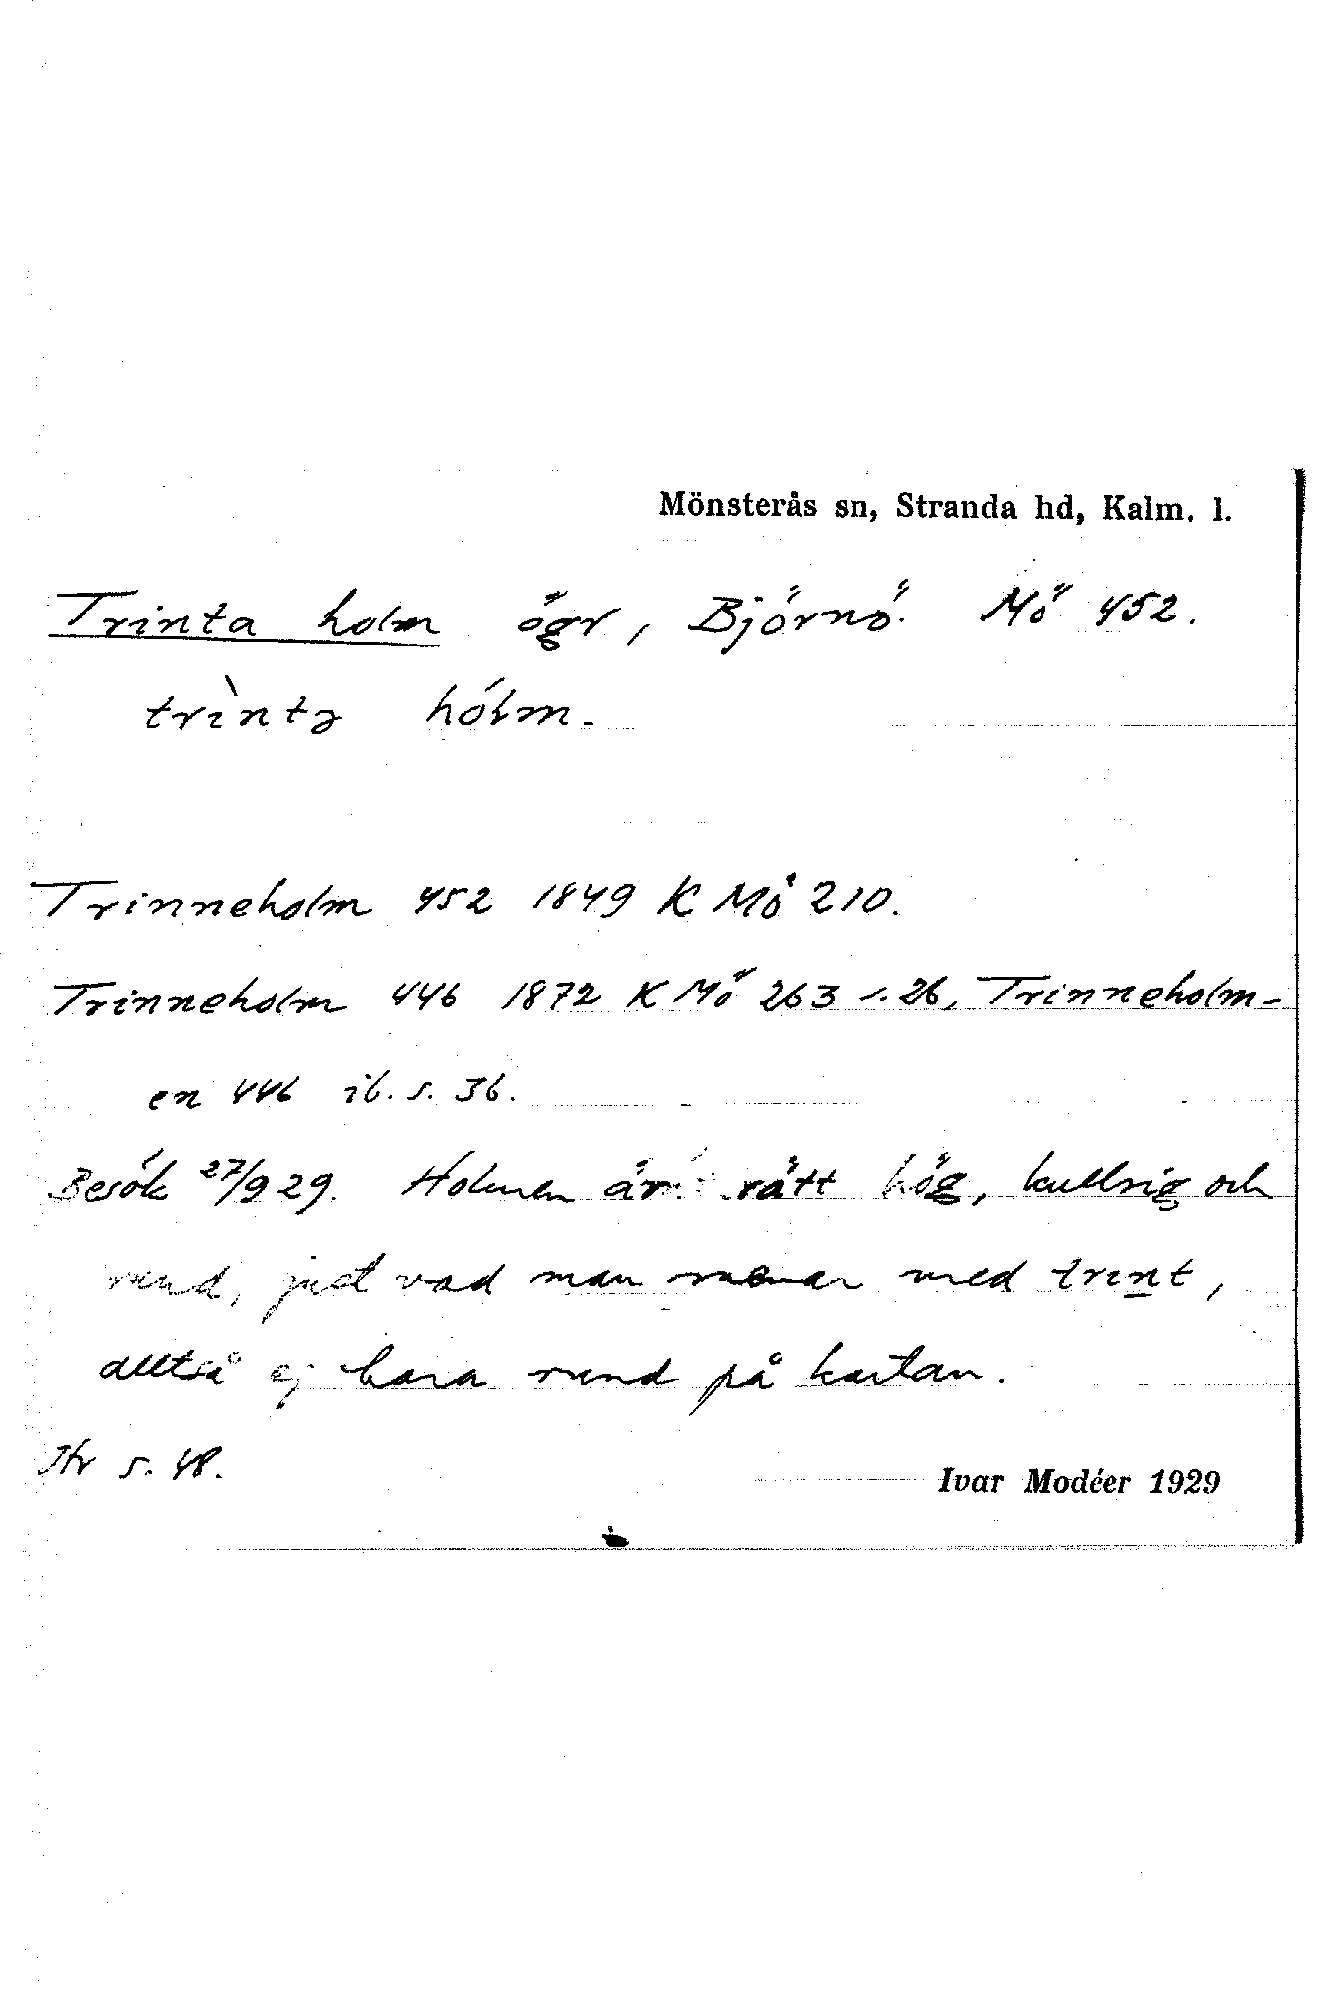 Mönsterås sn, Stranda hd, Kalm. l.
Trinta holm ögr, Björnö. Mö 452.
trìnta hólm.
Trinneholm 452 1849 K Mö 210.
Trinneholm 446 1872 K Mö 263 s. 26, Trinneholm-
en 446 ib. s. 36.
Besök 27/9 29. Holmen är rätt hög, kullrig och
rund, just vad man menar med trint,
alltså ej bara rund på kartan.
s. 48.
Ivar Modéer 1929